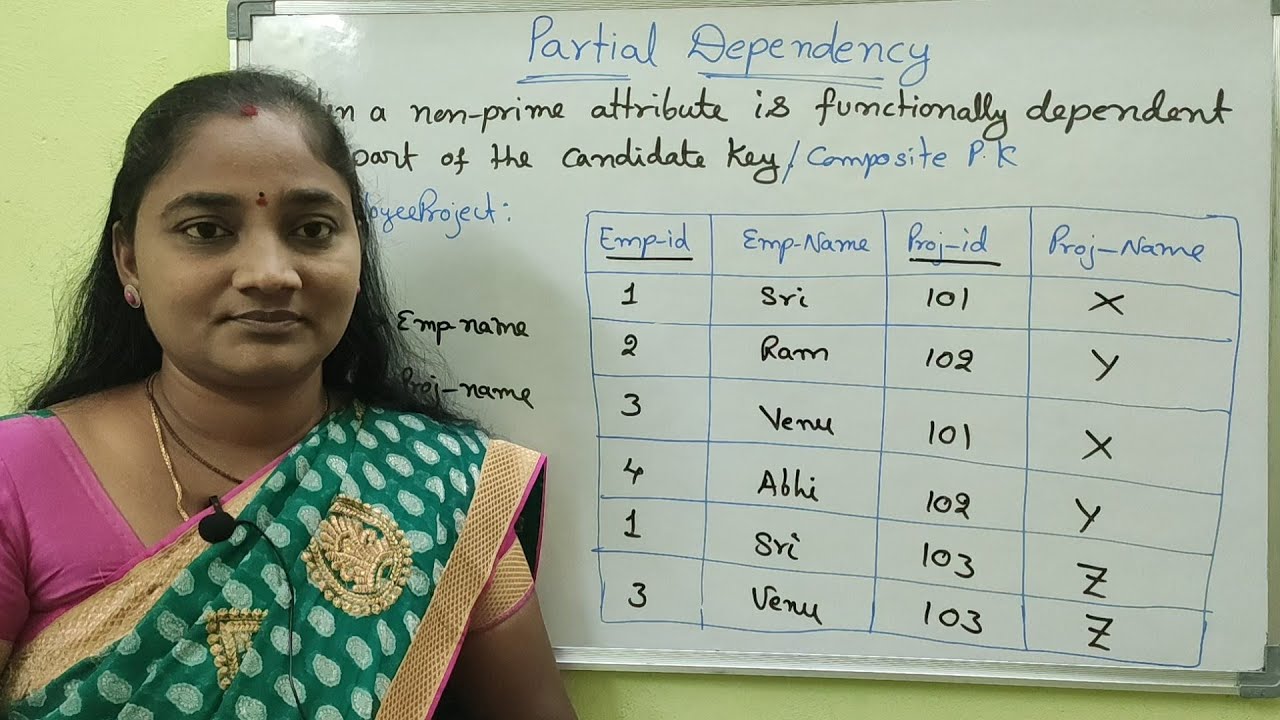 Partial Dependency
a non-prime attribute is functionally dependent
part of the candidate key/Composite P.K
Emp-id Emp-Name Proj-id Proj-Name
1 Sri 101 X
2 Ram 102 Y
3 Venu 101 X
4 Abhi 102 Y
1 Sri 103 Z
3 Venu 103 Z
Emp-name
Proj-name